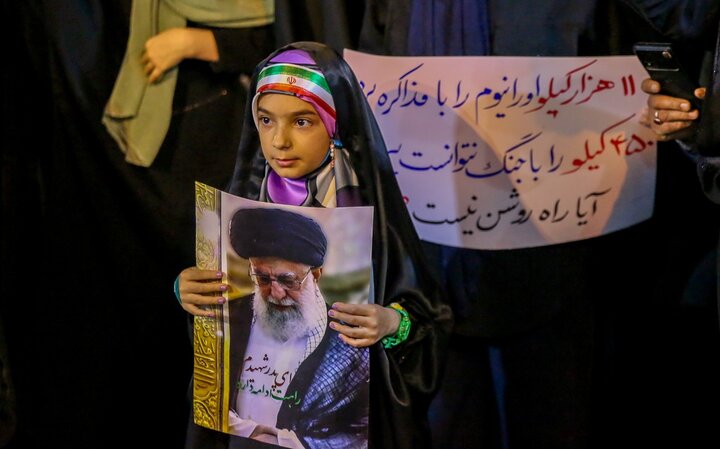 ۱۱ هزار کیلو اورانیوم را با مذاکره
۴۵۰ کیلو را با جنگ نتوانست
آیا راه روشن نیست
ای پدر شهیدم
راهت ادامه دارد